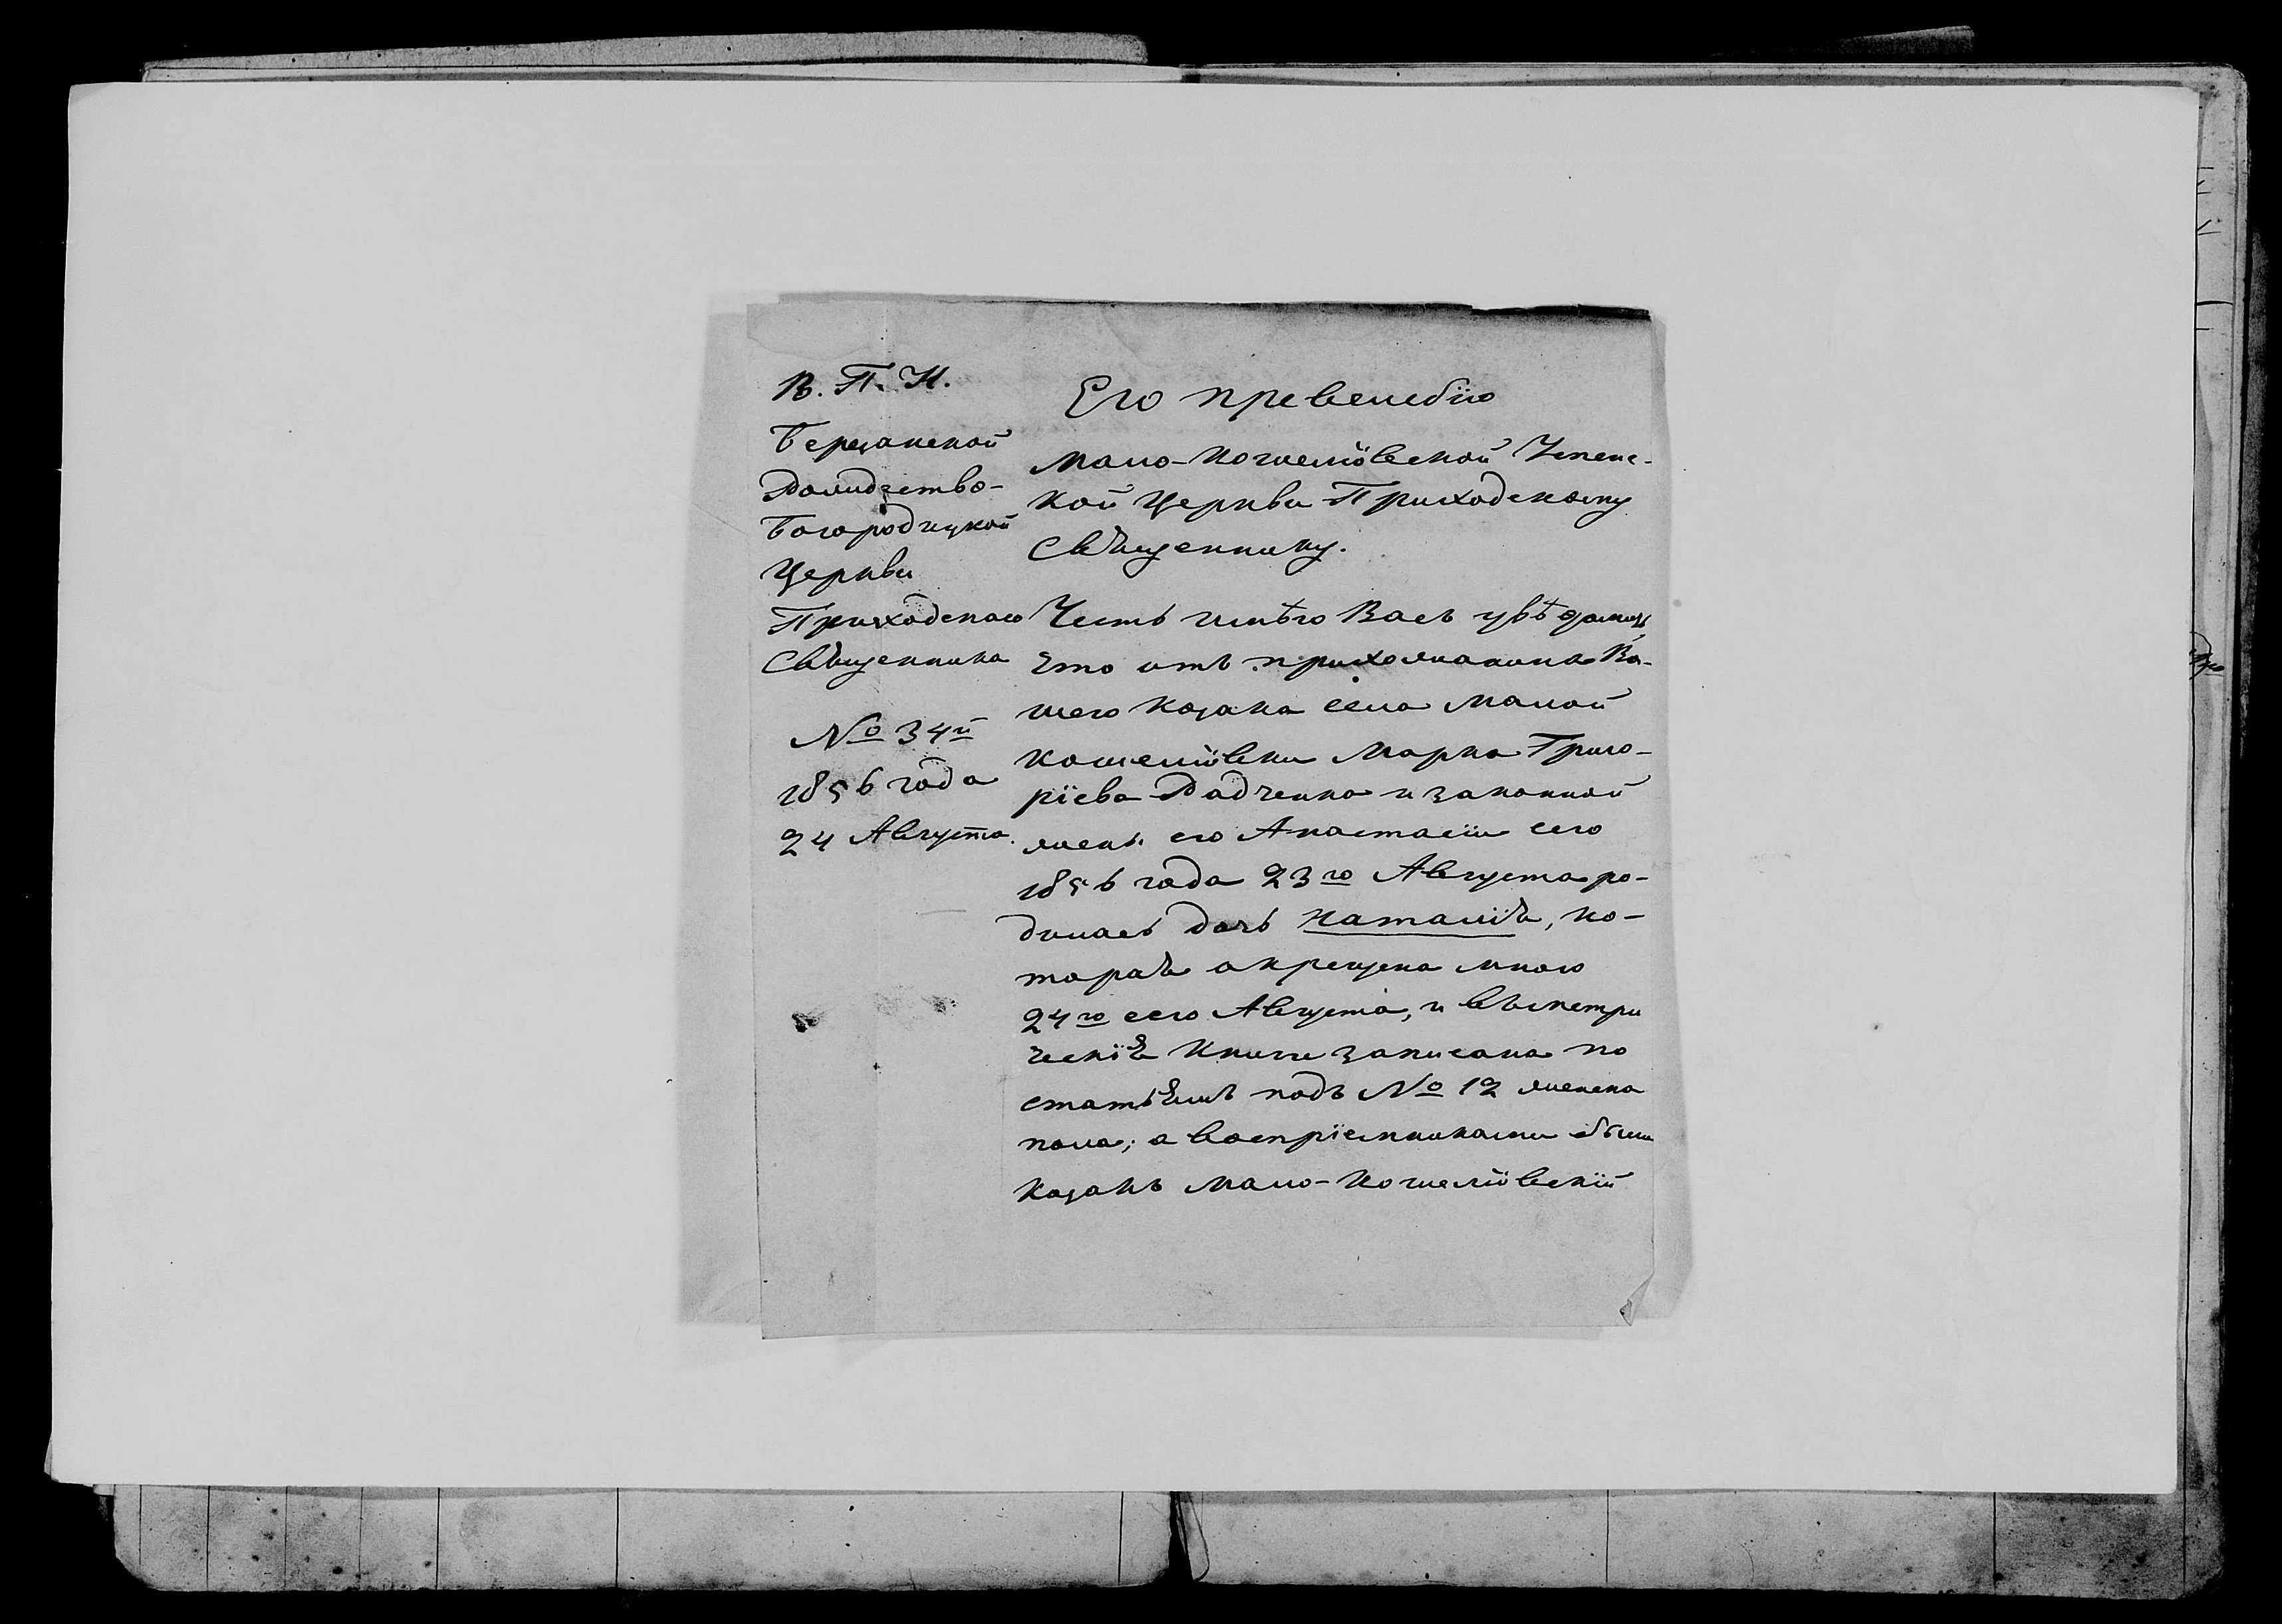 В. П. Н.
Березанской
Рождество-
Богородицкой
Церкви
Приходскаго
Священника
№ 34й
1856 года
24 Августа.
Его превелебію
Мало-Кошелiовской Успенс-
кой Церкви Приходскому
Священнику.
Честь имѣю Васъ увѣдомить
что отъ прихожанина Ва-
шего козака села Малой
Кошелiовки Марка Григо-
ріева Радченка и законной
жены его Анастасіи сего
1856 года 23го Августа ро-
дилась дочь Наталія, ко-
торая окрещена мною
24го сего Августа, и въ метри
ческія книги записана по
статьямъ подъ № 12 женска
пола; а воспріемниками были
козакъ Мало-Кошелiовскій